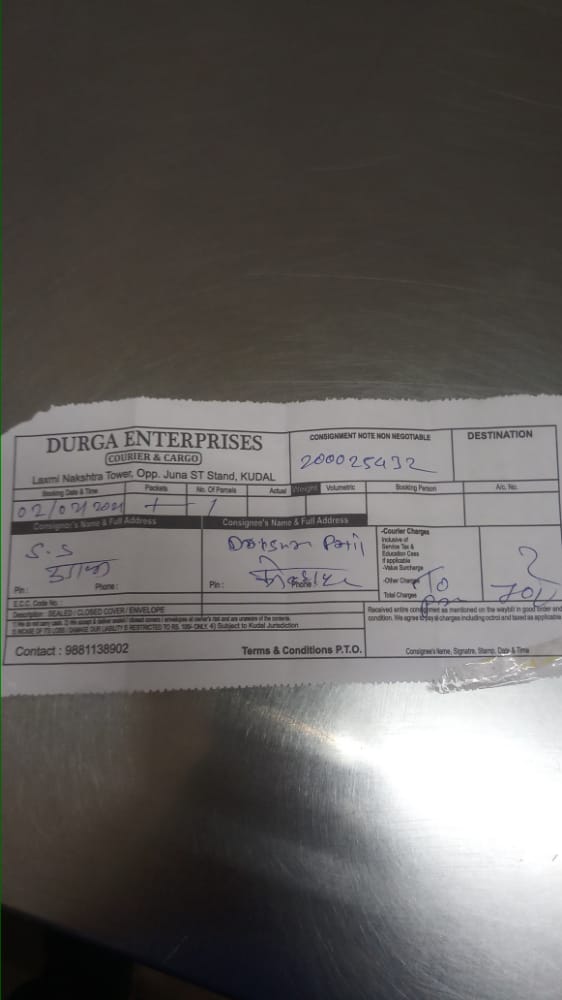 DURGA ENTERPRISES
COURIER & CARGO
Laxmi Nakshtra Tower, Opp. Juna ST Stand, KUDAL
CONSIGNMENT NOTE NON NEGOTIABLE
200025432
DESTINATION
Booking Date & Time Packets No. Of Parcels Actual Weight Volumetric Booking Person A/c. No.
02/02/2021 1
Consignor's Name & Full Address Consignee's Name & Full Address
S.S
Patil
Pin : Phone : Pin : Phone :
-Courier Charges
Inclusive of
Service Tax &
Education Cess
if applicable
-Value Surcharge
-Other Charges
Total Charges
TO
E.C.C. Code No. :
Description SEALED / CLOSED COVER / ENVELOPE
4) Subject to Kudal Jurisdiction
Received entire consignment as mentioned on the waybill in good order and
condition. We agree to pay all charges including octroi and taxed as applicable
Contact : 9881138902 Terms & Conditions P.T.O. Consignee's Name, Signatre, Stamp, Date & Time